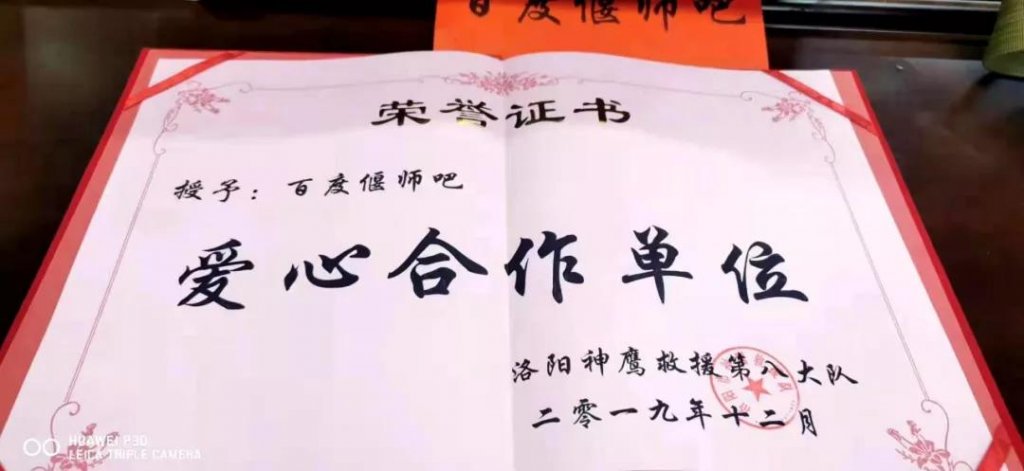 百度偃师吧
荣誉证书
授予：百度偃师吧
爱心合作单位
洛阳神鹰救援第八大队
二零一九年十二月
HUAWEI P30
LEICA TRIPLE CAMERA